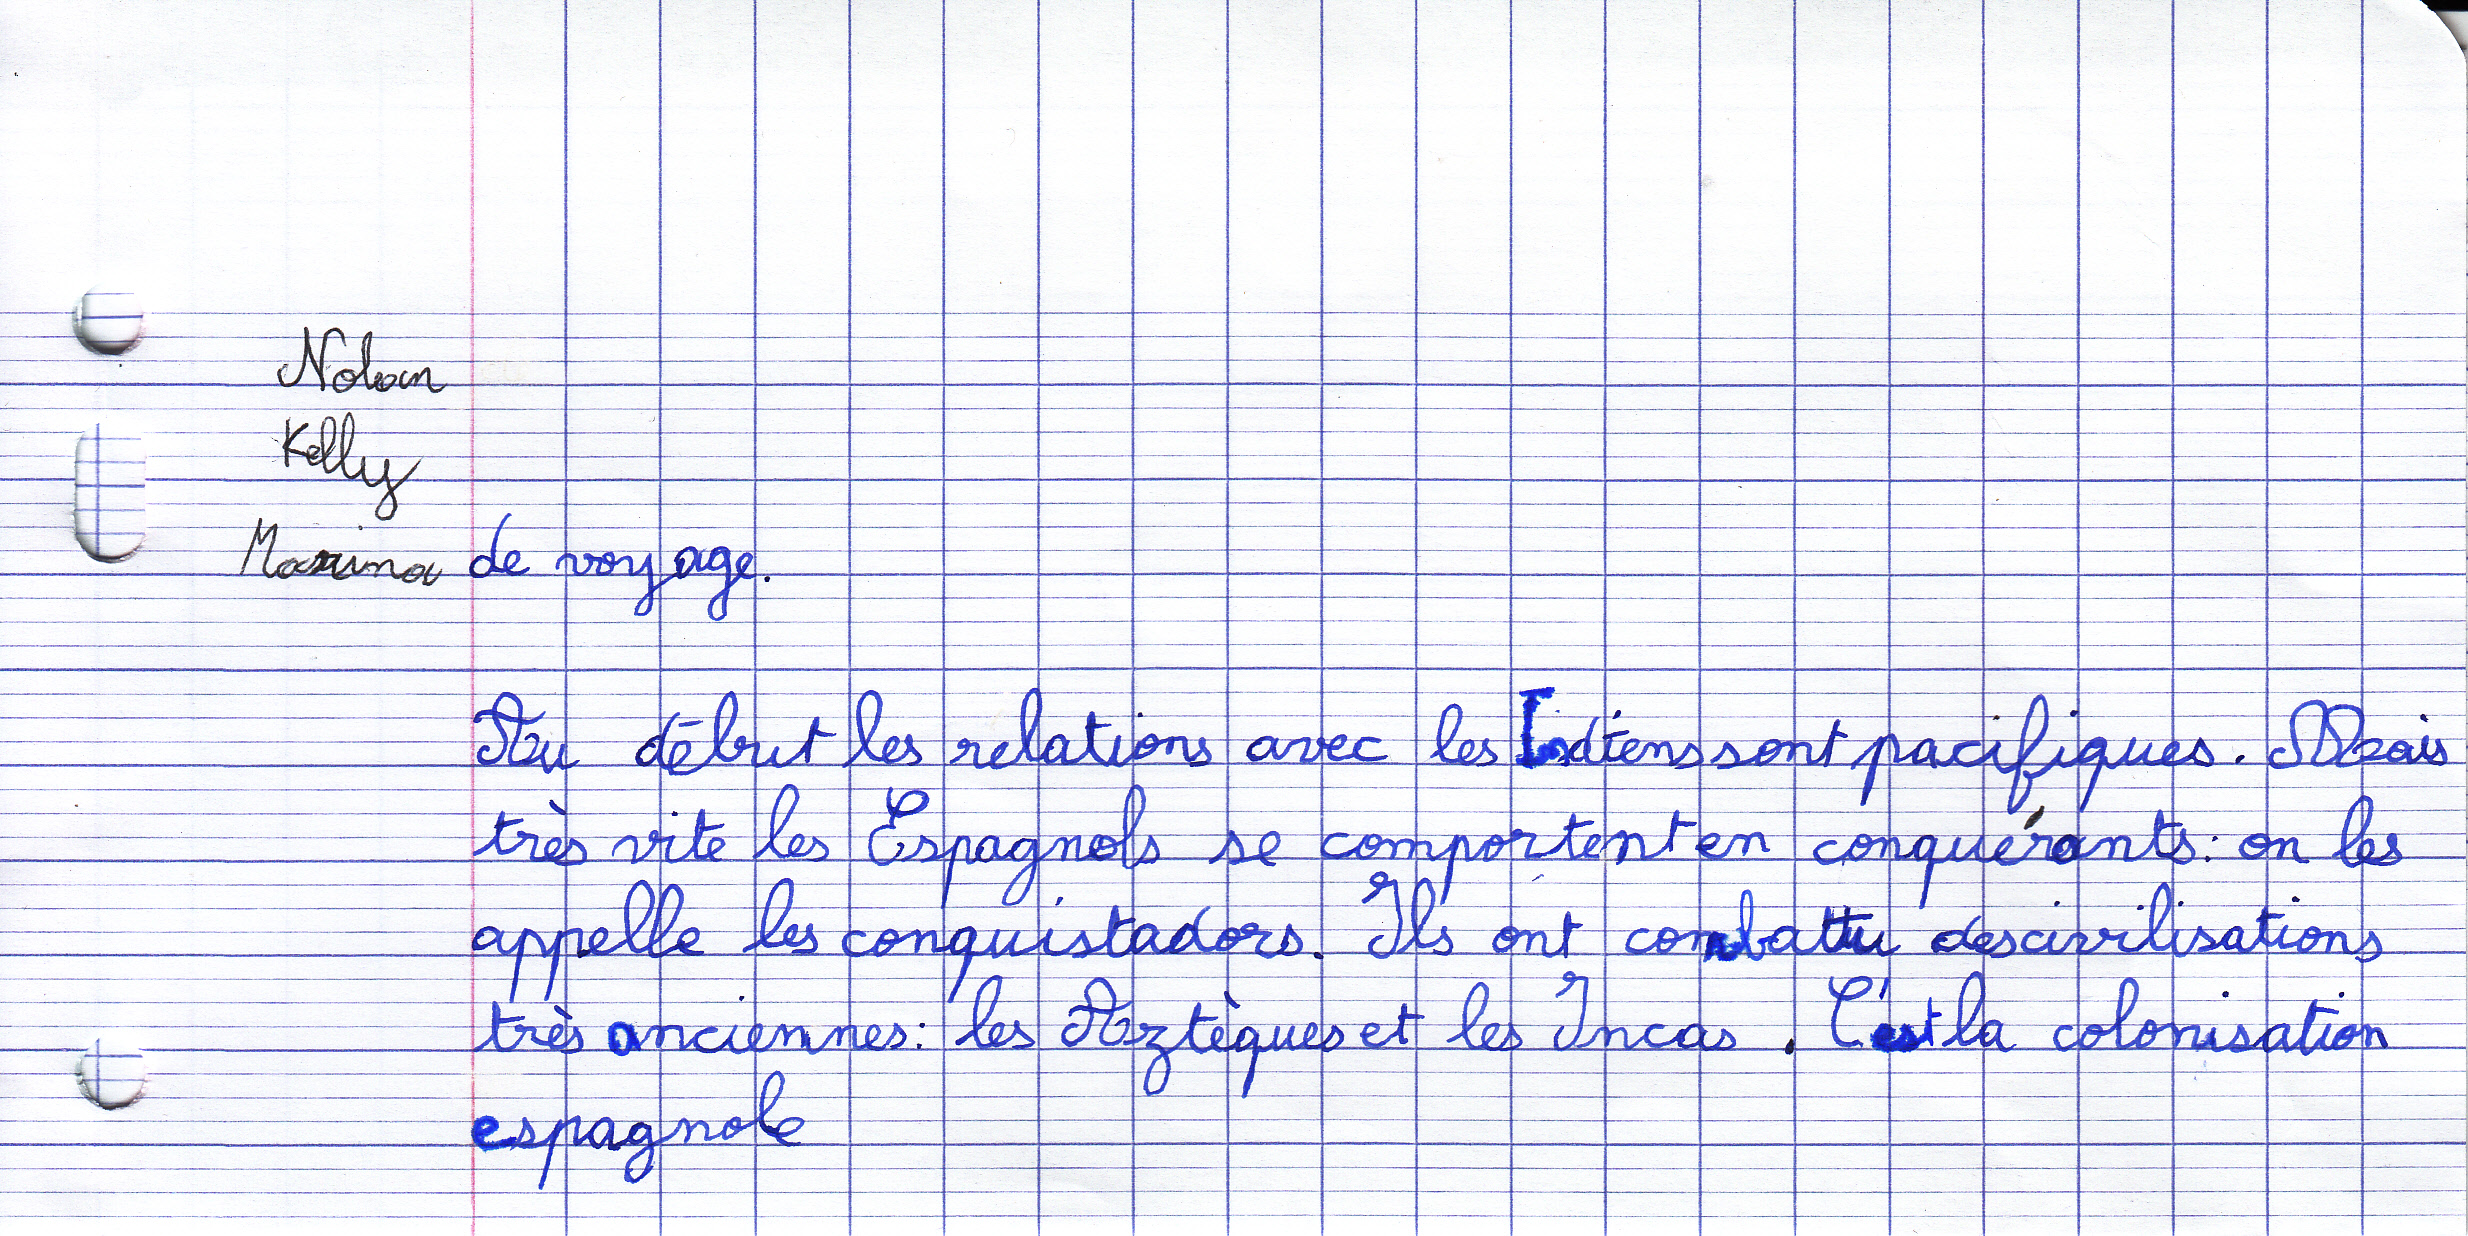 Nolan
Kelly
de voyage.
Au début les relations avec les Indiens sont pacifiques. Mais
très vite les Espagnols se comportent en conquérants: on les
appelle les conquistadors. Ils ont combattu des civilisations
très anciennes: les Aztèques et les Incas. C'est la colonisation
espagnole